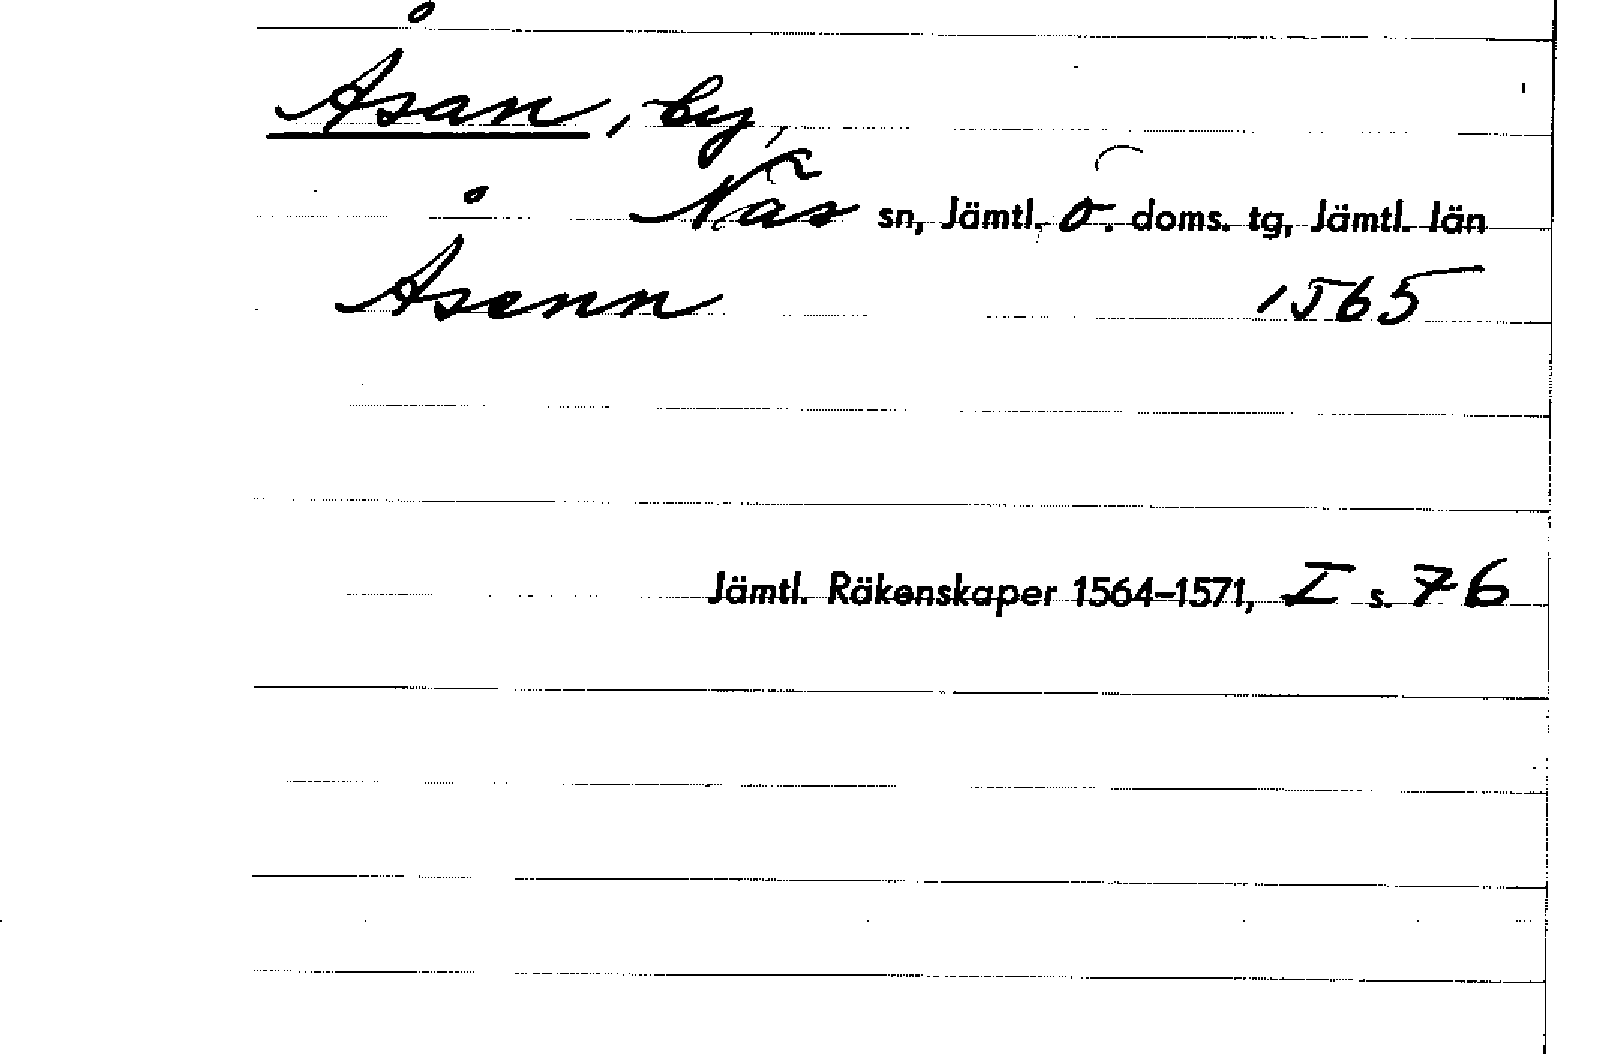 Åsan, by,
Näs sn, Jämtl. ö. doms. tg, Jämtl. län
Åsenn 1565
Jämtl. Räkenskaper 1564–1571, I s. 76